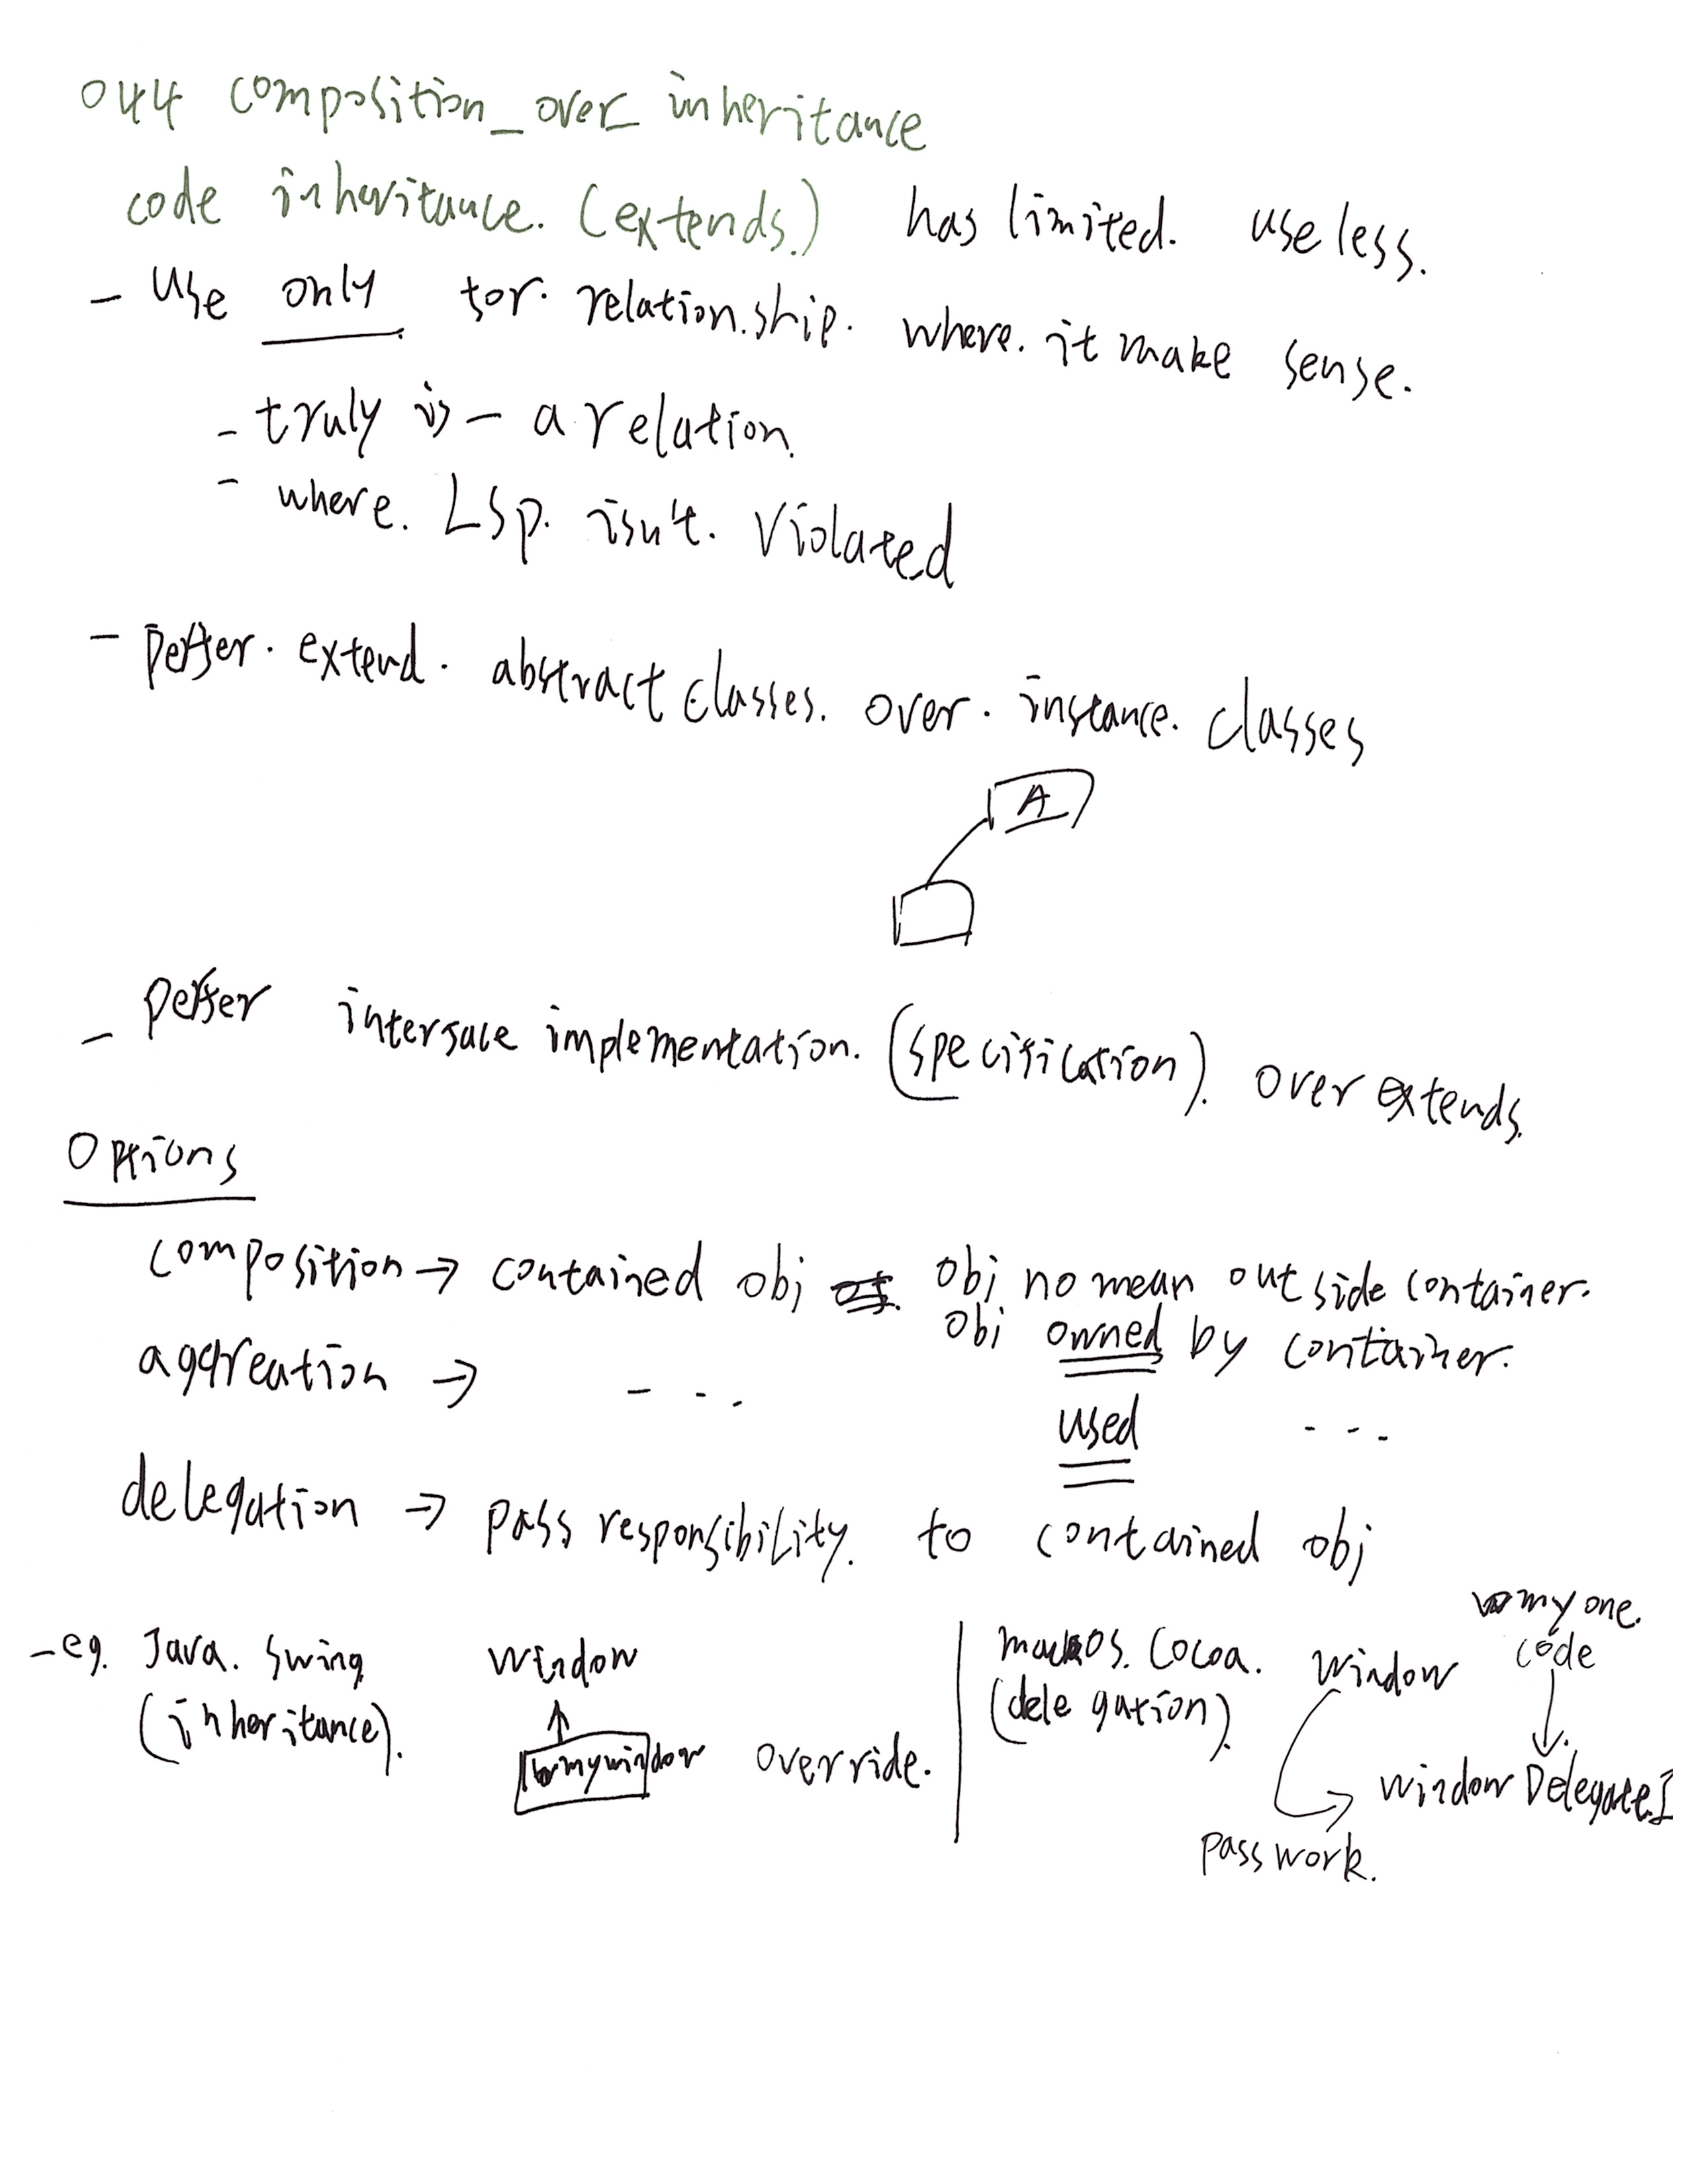 044 composition_over_inheritance
code inheritance. (extends.) has limited. useless.
- Use only for. relation.ship. where. it make sense.
- truly is - a relation.
- where. LSP. isn't. Violated
- peffer. extend. abstract classes. over. instance. classes
A
- peffer interface implementation. (specification). over extends.
Options
composition → contained obj obj no mean outside container.
obj owned by container.
aggreation → - - -
used - - -
delegation → pass responsibility. to contained obj
- eg. Java. Swing window macOS. Cocoa. window my one.
code
(inheritance). mywindow override. (delegation). window DelegateI
pass work.